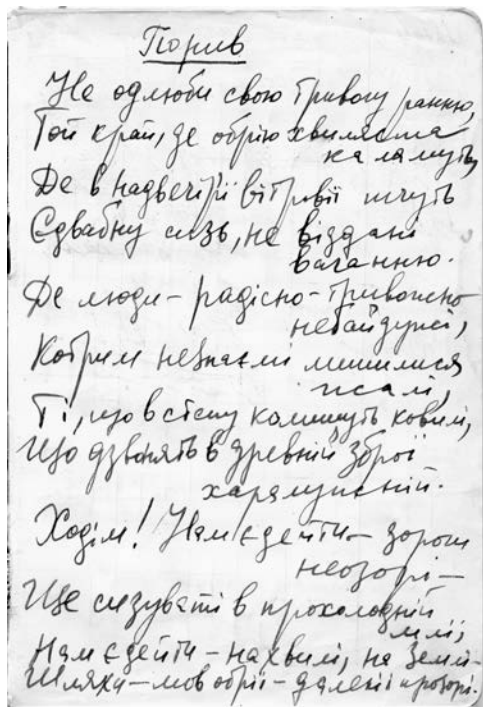 Порив
Не одлюби свою тривогу ранню,
Той край, де обрію хвиляста
каламуть,
Де в надвечірʼї вітровії тчуть
Єдвабну сизь, не віддані
ваганню.
Де люди – радісно-тривожно
небайдужі,
Котрим незнаємі лишилися
жалі,
Ті, що в степу колишуть ковилі,
Що дзвонять в древній зброї
харалужній.
Ходім! Нам є де йти – дороги
неозорі –
Ще сизуваті в прохолодній
млі,
Нам є де йти – на хвилі, на землі –
Шляхи – мов обрії – далекі і прозорі.